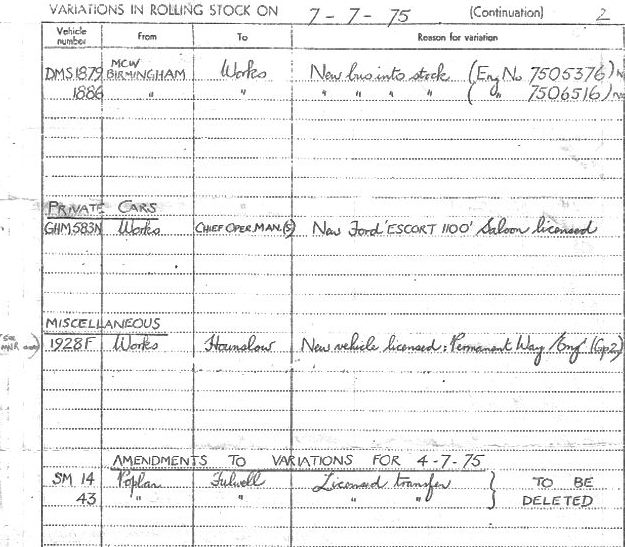 VARIATIONS IN ROLLING STOCK ON 7-7-75 (Continuation) 2
Vehicle number From To Reason for variation
DMS1879 MCW BIRMINGHAM Works New bus into stock (Eng No 7505376)
1886 " " " " " " ( " 7506516)
PRIVATE CARS
GHM583N Works CHIEF OPER.MAN.(S) New Ford 'ESCORT 1100' Saloon licensed
MISCELLANEOUS
1928F Works Hounslow New vehicle licensed: Permanent Way/Eng' (Gp2)
AMENDMENTS TO VARIATIONS FOR 4-7-75
SM 14 Poplar Fulwell Licensed transfer } TO BE
43 " " " " DELETED